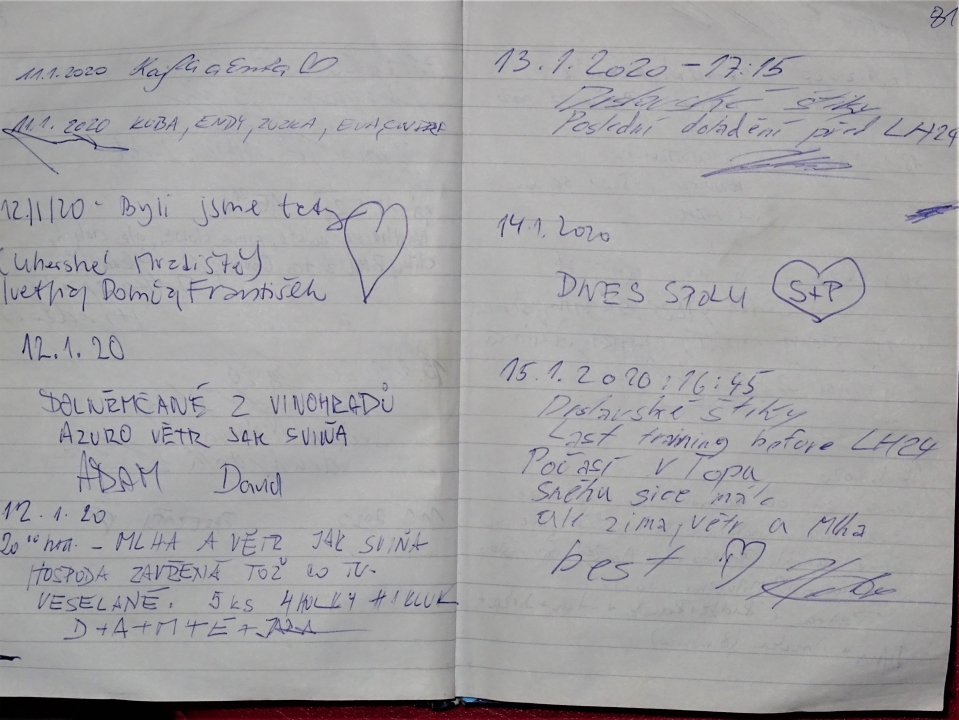 11.1.2020 Kajka a Enika
11.1.2020 KUBA, ENDY, ZUZKA, EVA,
12/1/20 - Byli jsme tady
(Uherské Hradiště)
Ivetka, Domča, František
12.1.20
DOLNĚMČANÉ Z VINOHRADŮ
AZURO VĚTR JAK SVIŇA
ADAM David
12.1.20
20 hod. - MLHA A VĚTR JAK SVIŇA
HOSPODA ZAVŘENÁ TOŽ CO TU.
VESELANÉ. 5 KS 4 HOLKY + 1 KLUK
D + A + M + E + JARA
81
13.1.2020 - 17:15
Drslavské štiky
Poslední doladění před LH24
14.1.2020
DNES SPOLU S+P
15.1.2020 : 16:45
Drslavské štiky
Last training before LH24
Počasí v Topu
Sněhu sice málo
ale zima, větr a Mlha
best